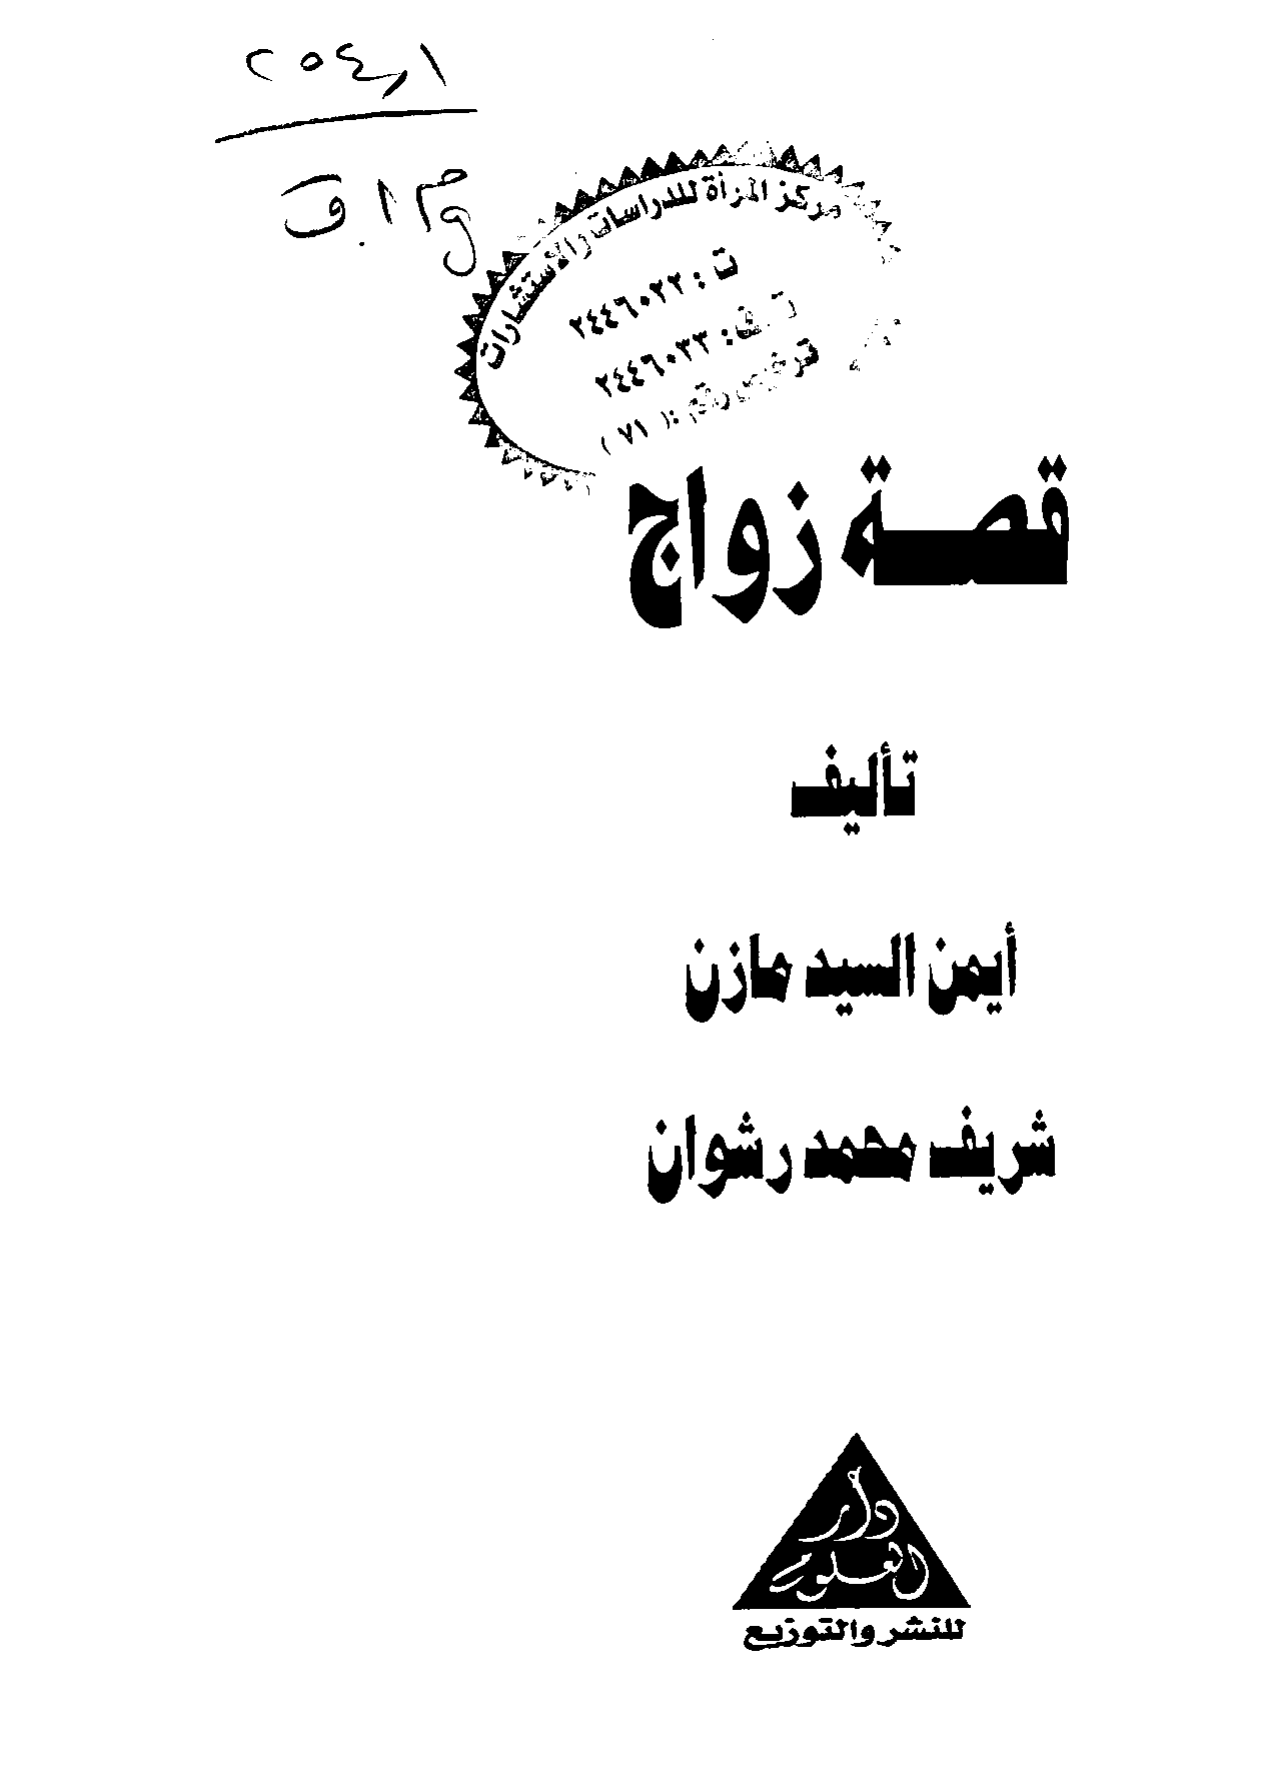 مركز المرأة للدراسات والاستشارات
ت : ٢٤٤٦٠٢٢
ت . ف : ٢٤٤٦٠٣٣
ترخيص رقم : ( ٧١ )
قصة زواج
تأليف
أيمن السيد مازن
شريف محمد رشوان
دار
العلوم
للنشر والتوزيع